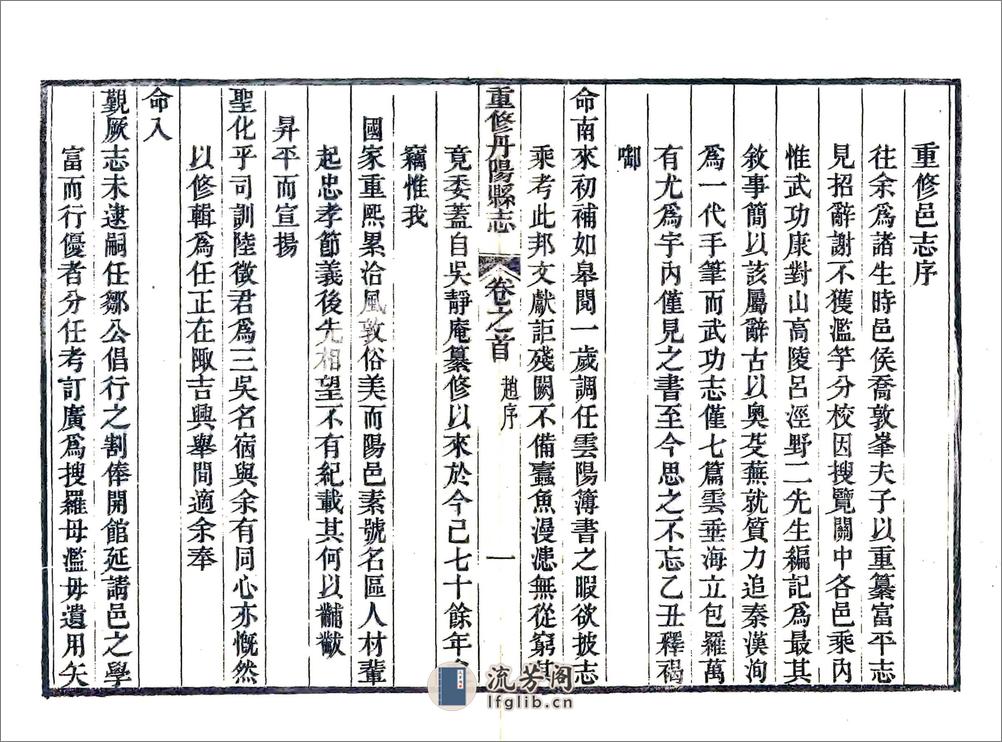 重修邑志序
往余爲諸生時邑侯喬敦峯夫子以重纂富平志
見招辭謝不獲濫竽分校因搜覽關中各邑乘內
惟武功康對山高陵呂涇野二先生編記爲最其
敘事簡以該屬辭古以奧芟蕪就質力追秦漢洵
爲一代手筆而武功志僅七篇雲垂海立包羅萬
有尤爲宇內僅見之書至今思之不忘乙丑釋褐
啣
命南來初補如皋閱一歲調任雲陽簿書之暇欲披志
乘考此邦文獻詎殘闕不備蠹魚漫漶無從窮其
重修丹陽縣志 卷之首 趙序 一
竟委蓋自吳靜庵纂修以來於今已七十餘年
竊惟我
國家重熙累洽風敦俗美而陽邑素號名區人材輩
起忠孝節義後先相望不有紀載其何以黼黻
昇平而宣揚
聖化乎司訓陸徵君爲三吳名宿與余有同心亦慨然
以修輯爲任正在諏吉興舉間適余奉
命入
覲厥志未逮嗣任鄒公倡行之割俸開館延請邑之學
富而行優者分任考訂廣爲搜羅毋濫毋遺用矢
流芳阁
lfglib.cn